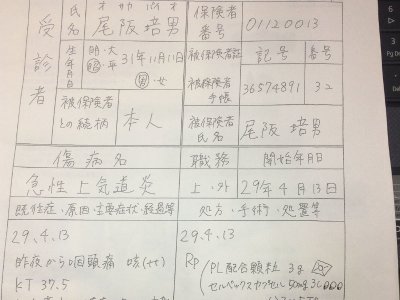 受診者
氏名
オサカ
尾阪 培男
保険者番号
01120013
生年月日
明・大
昭・平
31年11月11日
男・女
被保険者証
被保険者手帳
記号
番号
36574891
32
被保険者との続柄
本人
被保険者氏名
尾阪 培男
傷病名
職務
開始年月日
急性上気道炎
上・外
29年4月13日
既往症・原因・主要症状・経過等
処方・手術・処置等
29.4.13
29.4.13
昨夜から咽頭痛 咳(++)
Rp
KT 37.5
PL配合顆粒 3g
セルベックスカプセル 50mg 3C